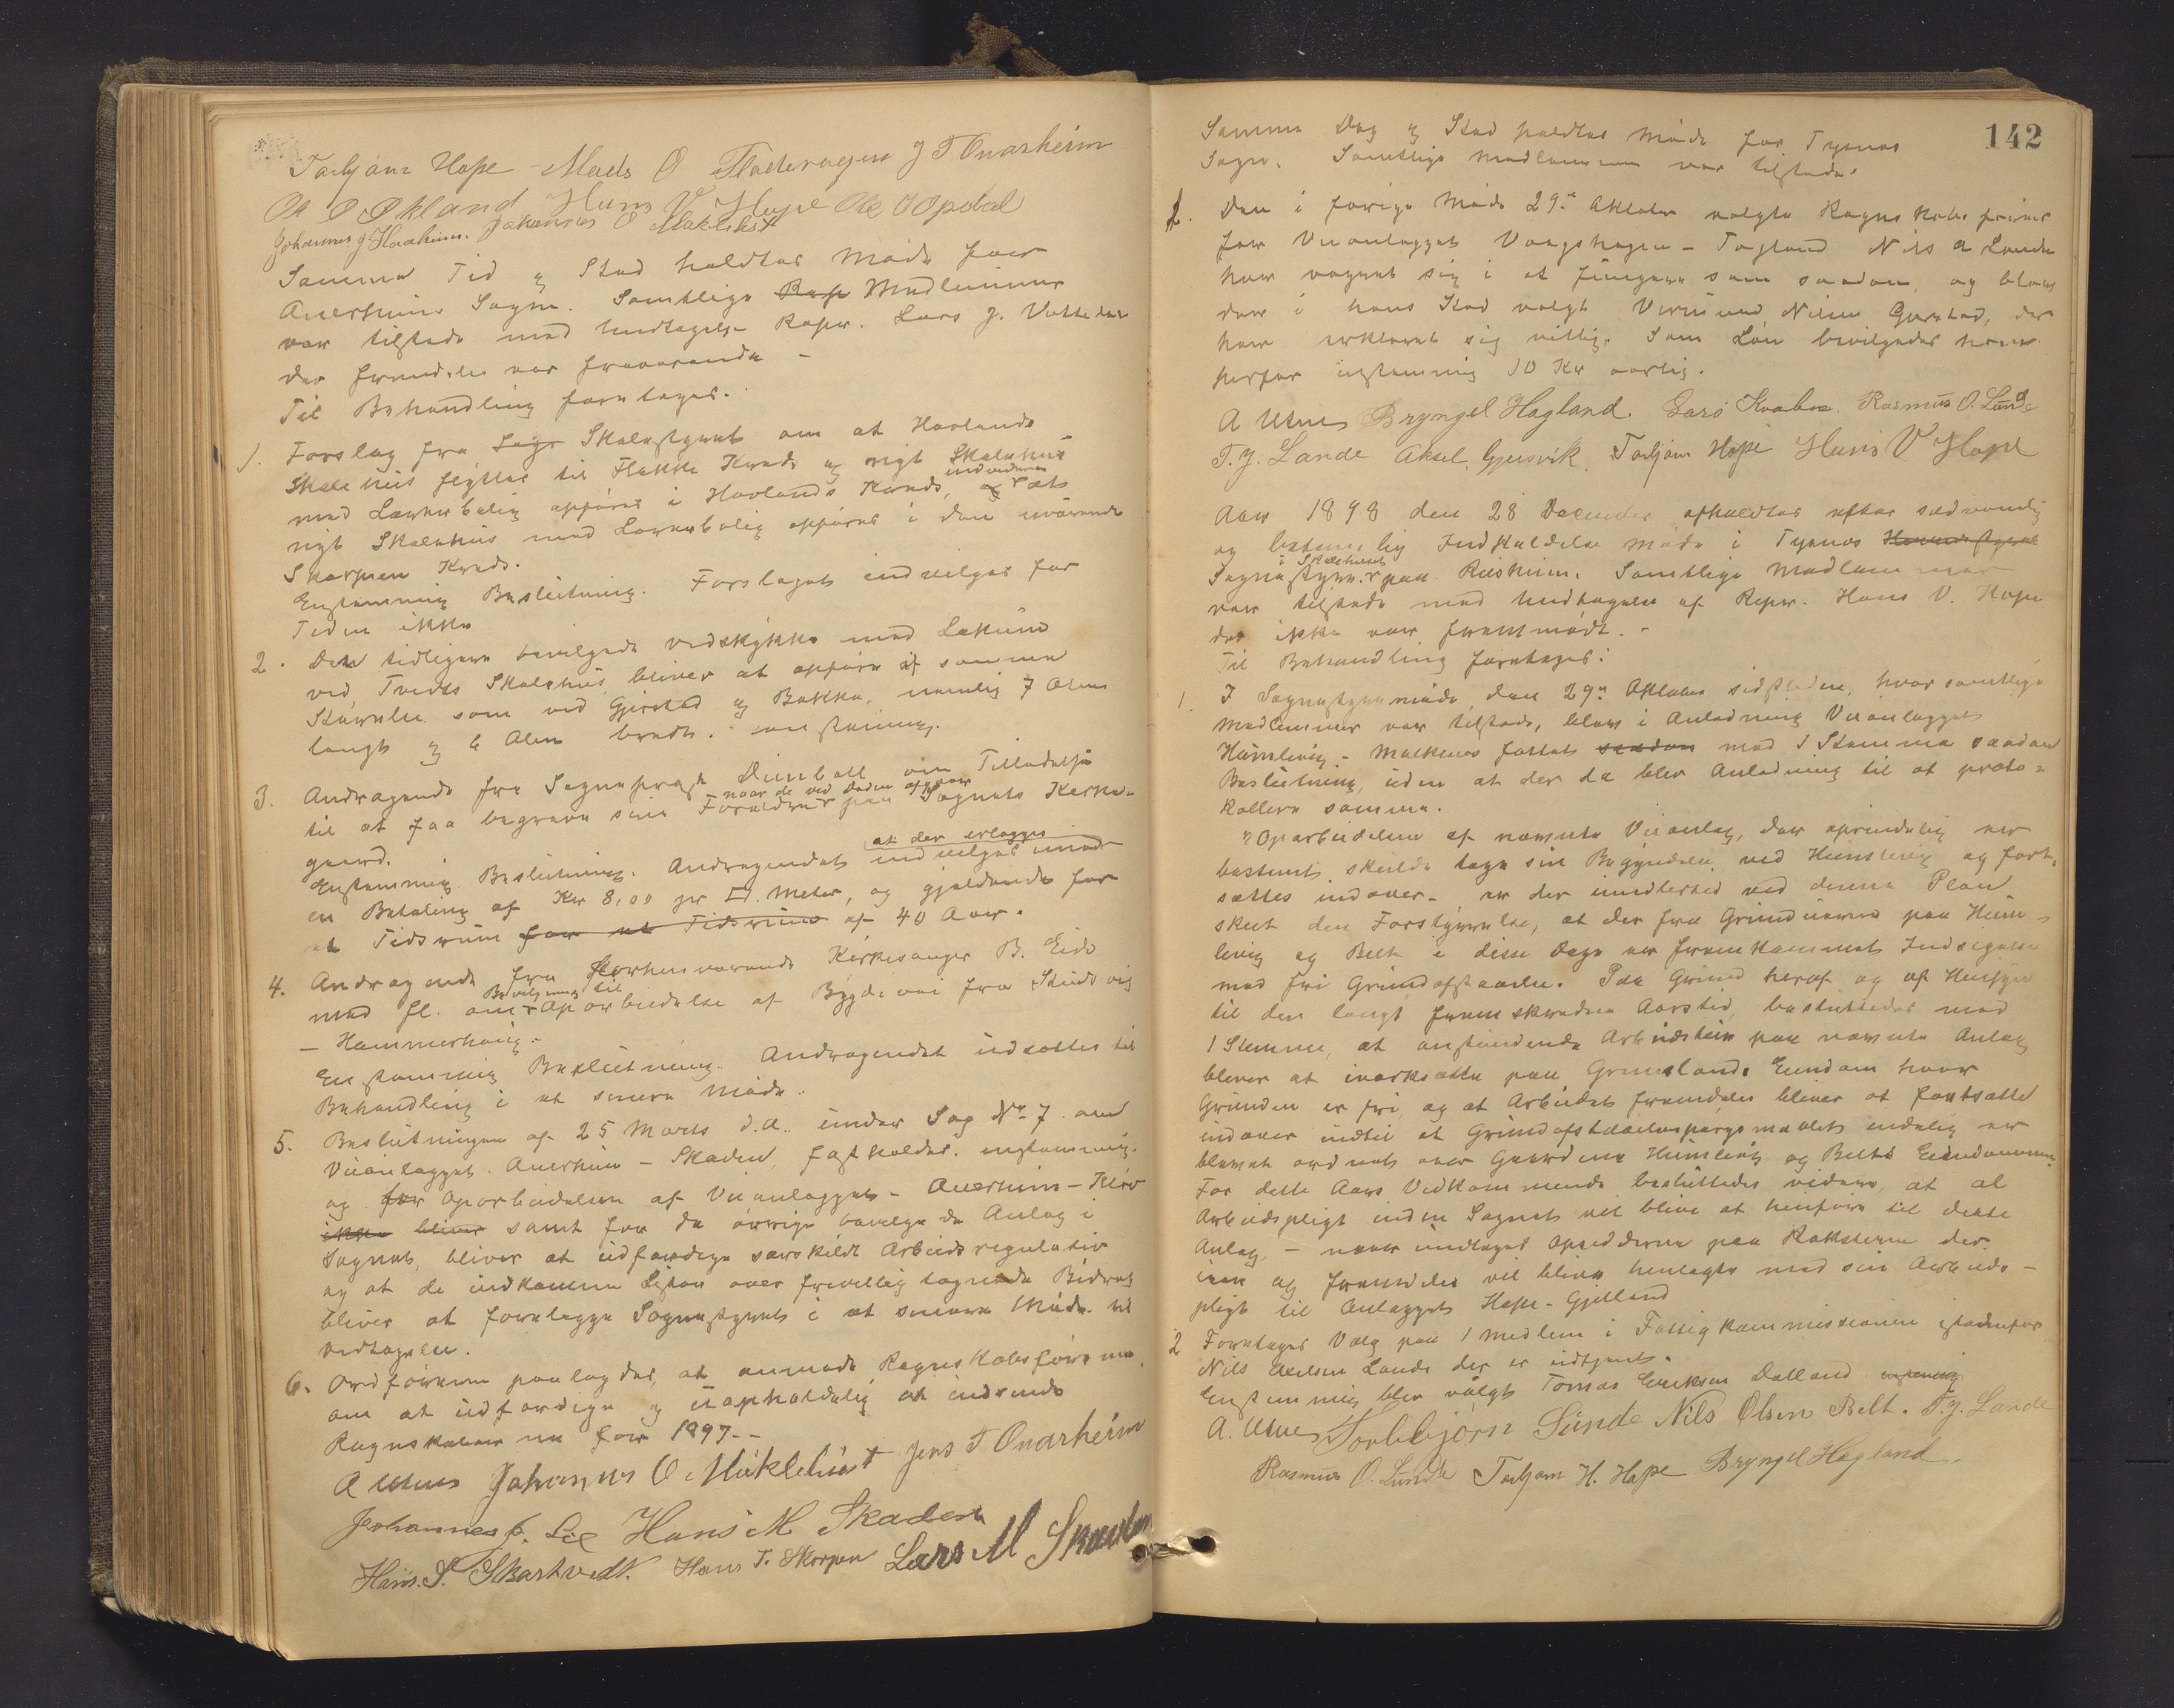 Torbjørn Hope Mads O Flatteragen J T Onarheim
Ole O Økland Hans V Hope Ole O Opdal
Johannes J Haaheim. Johannes O Møklebust
Samme Tid og Stad holdtes Møde for
Onerheims Sogn. Samtlige Rep Medlemmer
var tilstede med Undtagelse Repr. Lars J. Vattedal
der fremdeles var fraværende –
Til Behandling foretages.
1. Forslag fra Sogn Skolestyret om at Hovlands
Skolehus flyttes til Flakke Kreds og nyt Skolehus
med Lærerbolig opføres i Hovlands Kreds, og et
nyt Skolehus med Lærerbolig opføres i den nuværende
Skorpen Kreds.
Enstemmig Beslutning. Forslaget indvilges for
Tiden ikke
2. Det tidligere bevilgede vedskykke med Lokum
ved Tveits Skolehus bliver at opføre af samme
Størrelse som ved Gjerstad og Bakke, nemlig 7 Alen
langt og 6 Alen bredt. enstemmig.
3. Andragende fra Sogneprest Dunboll om Tilladelse
naar de ved Døden afgaar
til at faa begrave sine Forældre paa Sognets Kirke-
gaard.
at der erlægges
Enstemmig Beslutning. Andragendet indvilges imod
en Betaling af Kr 8,00 pr □. Meter, og gjældende for
et Tidsrum for et Tidsrum af 40 Aar.
4. Andragende fra forhenværende Kirkesanger B. Eide
Bevilgning til
med fl. om Oparbeidelse af Bygdevei fra Skudsvig
– Hammerhaug.
Enstemmig Beslutning. Andragendet udsættes til
Behandling i et senere Møde.
5. Beslutningen af 25 Marts d.A. under Sag No 7 om
Veianlægget. Onerheim – Skaden, fastholdes. enstemmig.
og for Oparbeidelsen af Veianlægget – Onerheim –
ikke bliver samt for de øvrige bevilgede Anlæg i
Sognet, bliver at udfærdige særskilt Arbeidsregulativ
og at de indkomne Lister over frivillig tegnede Bidrag
bliver at forelægge Sognestyret i et senere Møde til
Vedtagelse.
6. Ordføreren paalagdes, at anmode Regnskabsføreren
om at udfærdige og uopholdelig at indsende
Regnskaberne for 1897 –
A Utnes Johannes O Møklebust Jens T Onarheim
Johannes J. Lie Hans M Skaden
Hans. S. Skartvedt. Hans T. Skorpen Lars M Skaden
142
Samme Dag og Stad holdtes Møde for Tysnes
Sogn. Samtlige Medlemmer var tilstede.
1. Den i forrige Møde 29de Oktober valgte Regnskabsfører
for Veianlægget Vaagshagen – Tegland Nils A Lande
har vægret sig i at fungere som saadan, og blev
der i hans Sted valgt Vermund Nilsen Gjerstad, der
har erklæret sig villig. Som Løn bevilgedes ham
herfor enstemmig 10 Kr aarlig.
A Utnes Bryngel Hagland. Lars Kvalen. Rasmus O. Lunde
T. J. Lande Aksel. Gjersvik. Torbjørn Hope Hans V Hope
Aar 1898 den 28 December afholdtes efter sædvanlig
og betimelig Indkaldelse Møde i Tysnes Herredsstyre
i Skolehuset
Sognestyre paa Reisheim. Samtlige Medlemmer
var tilstede med Undtagelse af Repr. Hans V. Hope
der ikke var fremmødt. –
Til Behandling foretages:
1. I Sognestyremøde den 29de Oktober sidstleden, hvor samtlige
Medlemmer var tilstede, blev i Anledning Veianlægget
Humlevig – Malkenes fattet saadan med 1 Stemme saadan
Beslutning, uden at der da blev Anledning til at proto-
kollere samme.
"Oparbeidelsen af nævnte Veianlæg, der oprindelig er
bestemt skulde tage sin Begyndelse ved Humlevig og fort-
sættes indover – er der imidlertid ved denne Plan
skeet den Forstyrrelse, at der fra Grundeierne paa Hum-
levig og Belt i disse Dage er fremkommet Indsigelse
mod fri Grundafstaaelse. Paa Grund heraf og af Hensyn
til den langt fremskredne Aarstid, besluttedes med
1 Stemme, at anstændende Arbeidstein paa nævnte Anlæg
bliver at iværksætte paa Grunslands Eiendom hvor
Grunden er fri, og at Arbeidet fremdeles bliver at fortsætte
indover indtil at Grundafstaaelsespørgsmaalet endelig er
blevet ordnet over Gaardene Humlevig og Belts Eiendomme.
For dette Aars Vedkommende besluttedes videre, at al
Arbeidspligt inden Sognet vil blive at henføre til dette
Anlæg, – naar undtages Opsidderne paa Roksterne der
iaar og fremdeles vil blive henlagte med sin Arbeids-
pligt til Anlægget Hope – Gjelland
2 Foretages Valg paa 1 Medlem i Fattigkommissionen istedenfor
Nils Aadsen Lande der er udtjent.
Enstemmig blev valgt Tomas Eriksen Dalland enstemmig
A. Utnes Torbbjørn Sunde Nils Olsen Belt. T. J. Lande
Rasmus O. Lunde Torbjørn H. Hope Bryngel Hagland.